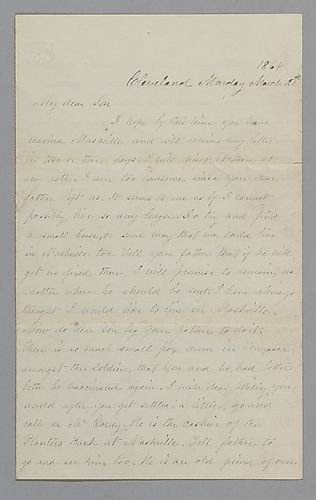 1864
Cleveland Monday March 28th
My dear Son
I hope by this time you have
reached Nashville and will receive my letter
in two or three days. I will direct it there at
any rate. I am too lonesome since you dear
father left us. It seems to me as if I cannot
possibly live so any longer. Do try and find
a small house, or some way that we could live
in Nashville too. Tell your father that if he will
get us fixed there, I will promise to remain, no
matter where he should be sent. I have always
thought I would like to live in Nashville,
now do dear son beg your father to do it;
there is so much small pox down in
amongst the soldiers, that you and he, had better
both be vaccinated again. I wish dear Willey, you
would after you get settled a little, go and
call on Mr. He is the cashier of the
Planters Bank at Nashville. Tell father to
go and see him too. He is an old friend of ours